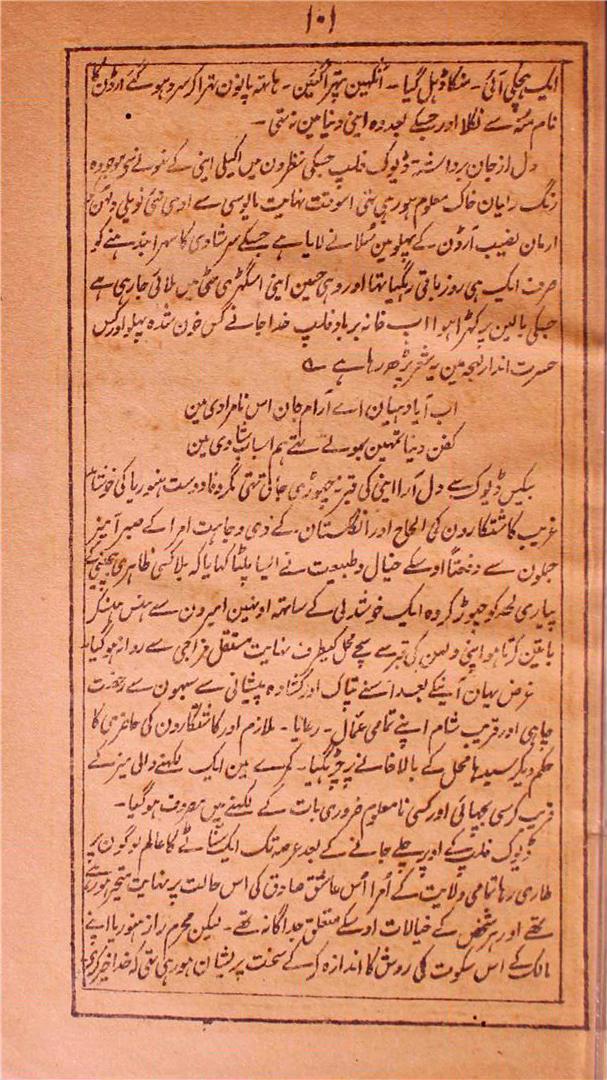 ۱۰۱
ایک ہچکی آئی۔ منکا ڈہل گیا۔ آنکہین پتہرا گئین۔ ہاتہہ پانون تہرا کر سرد ہو گئے آرڈن کا
نام منہ سے نکلا اور جسکے بعد وہ اینی دنیا مین نہ تہی۔
دل از جان برداشتہ ڈیوک فلپ جسکی نظرون مین اکیلی اینی کے نہونے سے موجودہ
رنگ رلیان خاک معلوم ہو رہی تہی اسوقت نہایت مایوسی سے اوسی نئی نویلی دلہن کو
ارمان نصیب آرڈن کے پہلو مین سُلانے لایا ہے جسکے سر شادی کا سہرا بندہنے کو
صرف ایک ہی روز باقی رہگیا تہا اور وہی حسین اینی اسگہڑی مٹی مین ملائی جا رہی ہے
جسکی بالین پر کہڑا ہوا اب خانہ برباد فلپ خدا جانے کس خون شدہ پہلو اور کس
حسرت انداز لہجہ مین یہ شعر پڑہ رہا ہے ؎
اب آیا دہیان اے آرام جان اس نامرادی مین
کفن دینا تمہین بہولے تہے ہم اسباب شادی مین
بیکس ڈیوک سے دل آرا اینی کی قبر نہ چہوڑی جاتی تہی مگر وفادوست ہنوریا کی خوشامد
غریب کاشتکارون کی الحاح اور انگلستان کے ذی وجاہت امرا کے صبر آمیز
جملون سے دفعتاً اوسکے خیال و طبیعت نے ایسا پلٹا کہایا کہ بلا کسی ظاہری بیچینی کے
پیاری لحد کو چہوڑ کر وہ ایک خوشدلی کے ساتہہ اونہین امیرون سے ہنس ہنسکر
باتین کرتا ہوا اپنی دلہن کی قبر سے سچے محل کیطرف نہایت مستقل مزاجی سے روانہ ہو گیا۔
غرض یہان آنیکے بعد اسنے تپاک اور کشادہ پیشانی سے سبہون سے رخصت
چاہی اور قریب شام اپنے تمامی عمّال۔ رعایا۔ ملازم اور کاشتکارون کی حاضری کا
حکم دیکر سیدہا محل کے بالا خانے پر چڑہگیا۔ کمرے مین ایک لکہنے والی میز کے
قریب کرسی بچہائی اور کسی نامعلوم ضروری بات کے لکہنے مین مصروف ہو گیا۔
ڈیوک فلپ کے اوپر چلے جانے کے بعد عرصہ تک ایک سنّاٹے کا عالم لوگون پر
طاری رہا تمامی ولایت کے اُمرا اُس عاشق صادق کی اس حالت پر نہایت متحیر ہو رہے
تہے اور ہر شخص کے خیالات اوسکے متعلق جداگانہ تہے۔ لیکن محرم راز ہنوریا اپنے
مالک کے اس سکوت کی روش کا اندازہ کر کے سخت پریشان ہو رہی تہی کہ خدا خیر کرے